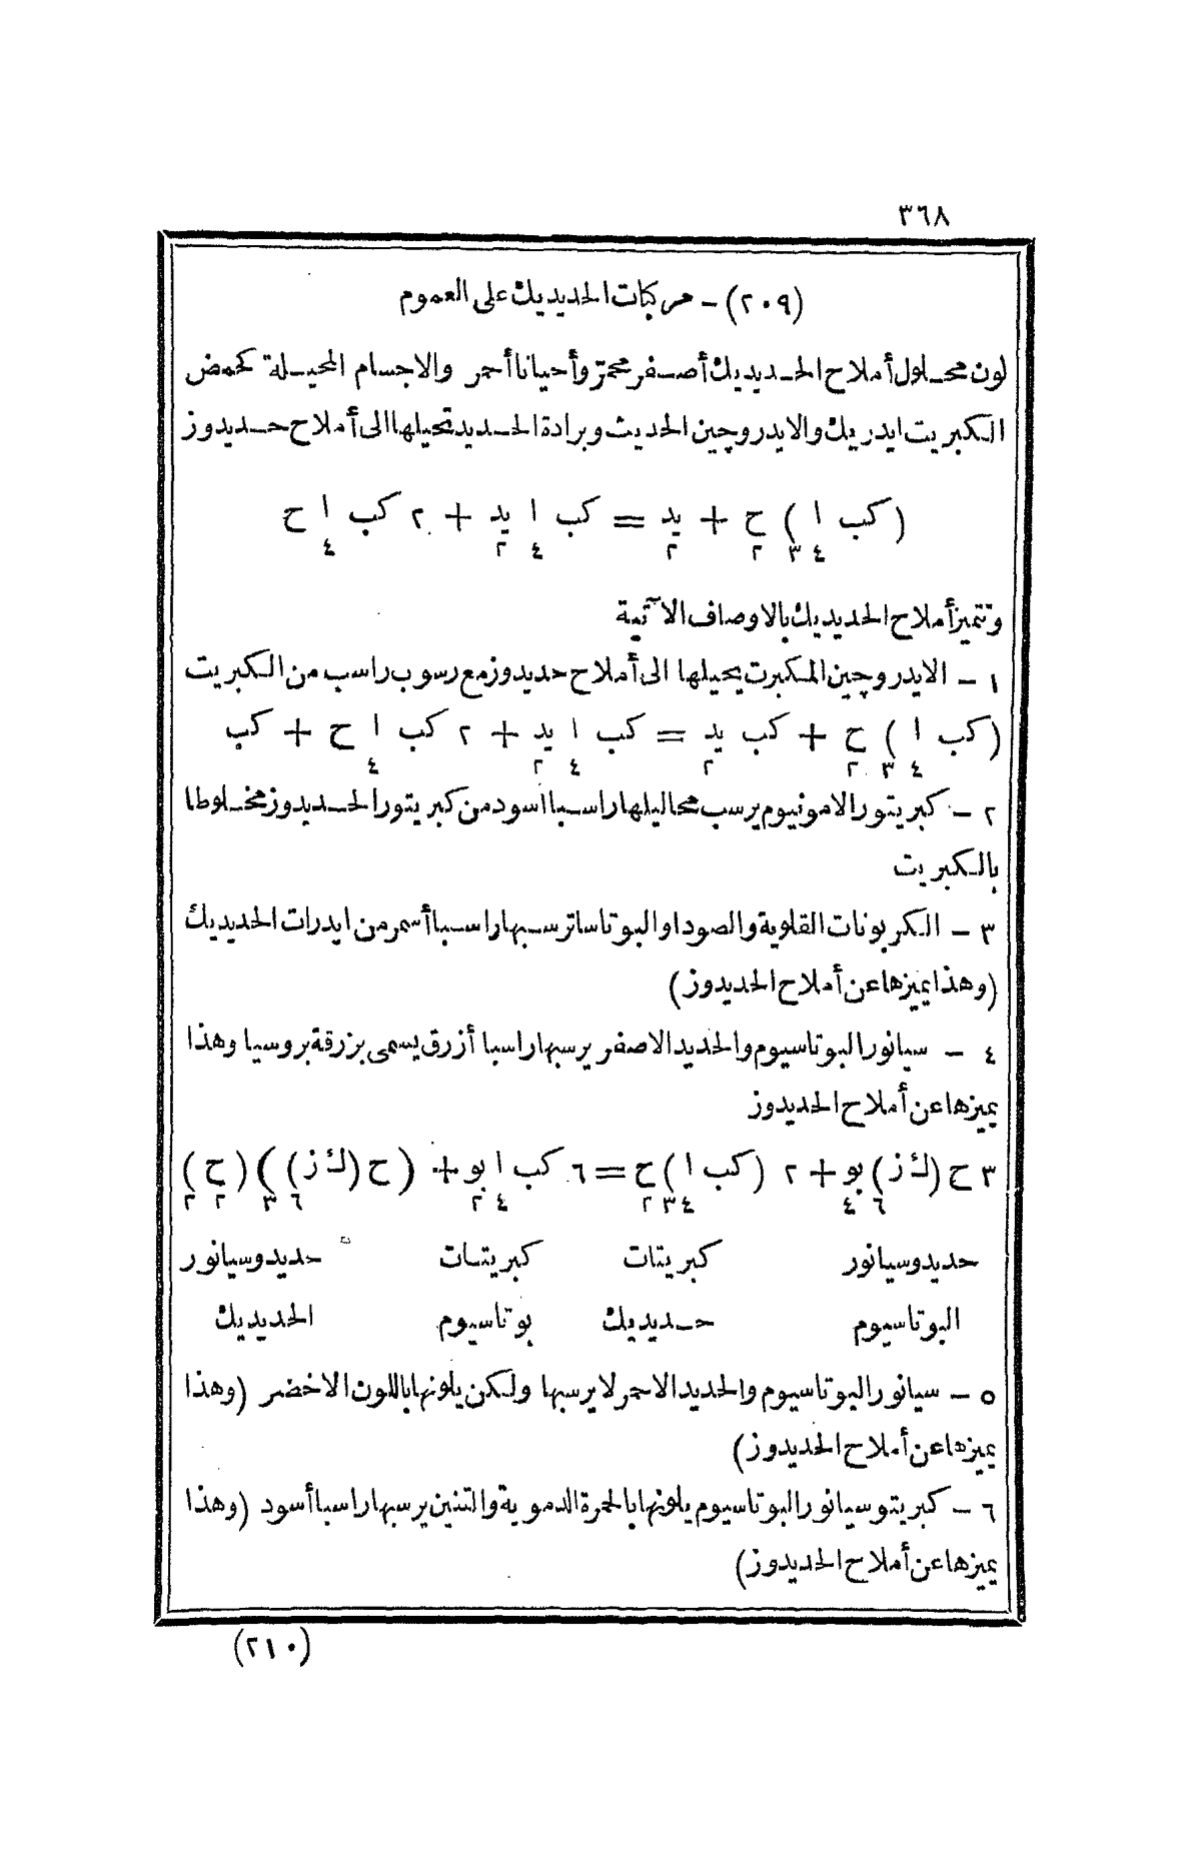 ٣٦٨
(٢٠٩) - مركبات الحديديك على العموم
لون محلول أملاح الحديديك أصفر محمرّ وأحيانا أحمر والاجسام المحيلة كحمض
الكبريت ايدريك والايدروچين الحديث وبرادة الحديد تحيلها الى أملاح حديدوز
(كب ا٤)٣ ح٢ + يد٢ = كب ا٤ يد٢ + ٢ كب ا٤ ح
وتتميز أملاح الحديديك بالاوصاف الآتية
١ - الايدروچين المكبرت يحيلها الى أملاح حديدوز مع رسوب راسب من الكبريت
(كب ا٤)٣ ح٢ + كب يد٢ = كب ا٤ يد٢ + ٢ كب ا٤ ح + كب
٢ - كبريتور الامونيوم يرسب محاليلها راسبا أسود من كبريتور الحديدوز مخلوطا
بالكبريت
٣ - الكربونات القلوية والصودا والبوتاسا ترسبها راسبا أسمر من ايدرات الحديديك
(وهذا يميزها عن أملاح الحديدوز)
٤ - سيانور البوتاسيوم والحديد الاصفر يرسبها راسبا أزرق يسمى بزرقة بروسيا وهذا
يميزها عن أملاح الحديدوز
٣ ح(ك ز)٦ بو٤ + ٢ (كب ا٤)٣ ح٢ = ٦ كب ا٤ بو٢ + (ح(ك ز)٦)٣ (ح٢)٢
حديدوسيانور كبريتات كبريتات حديدوسيانور
البوتاسيوم حديديك بوتاسيوم الحديديك
٥ - سيانور البوتاسيوم والحديد الاحمر لا يرسبها ولكن يلونها باللون الاخضر (وهذا
يميزها عن أملاح الحديدوز)
٦ - كبريتوسيانور البوتاسيوم يلونها بالحمرة الدموية والتنين يرسبها راسبا أسود (وهذا
يميزها عن أملاح الحديدوز)
(٢١٠)